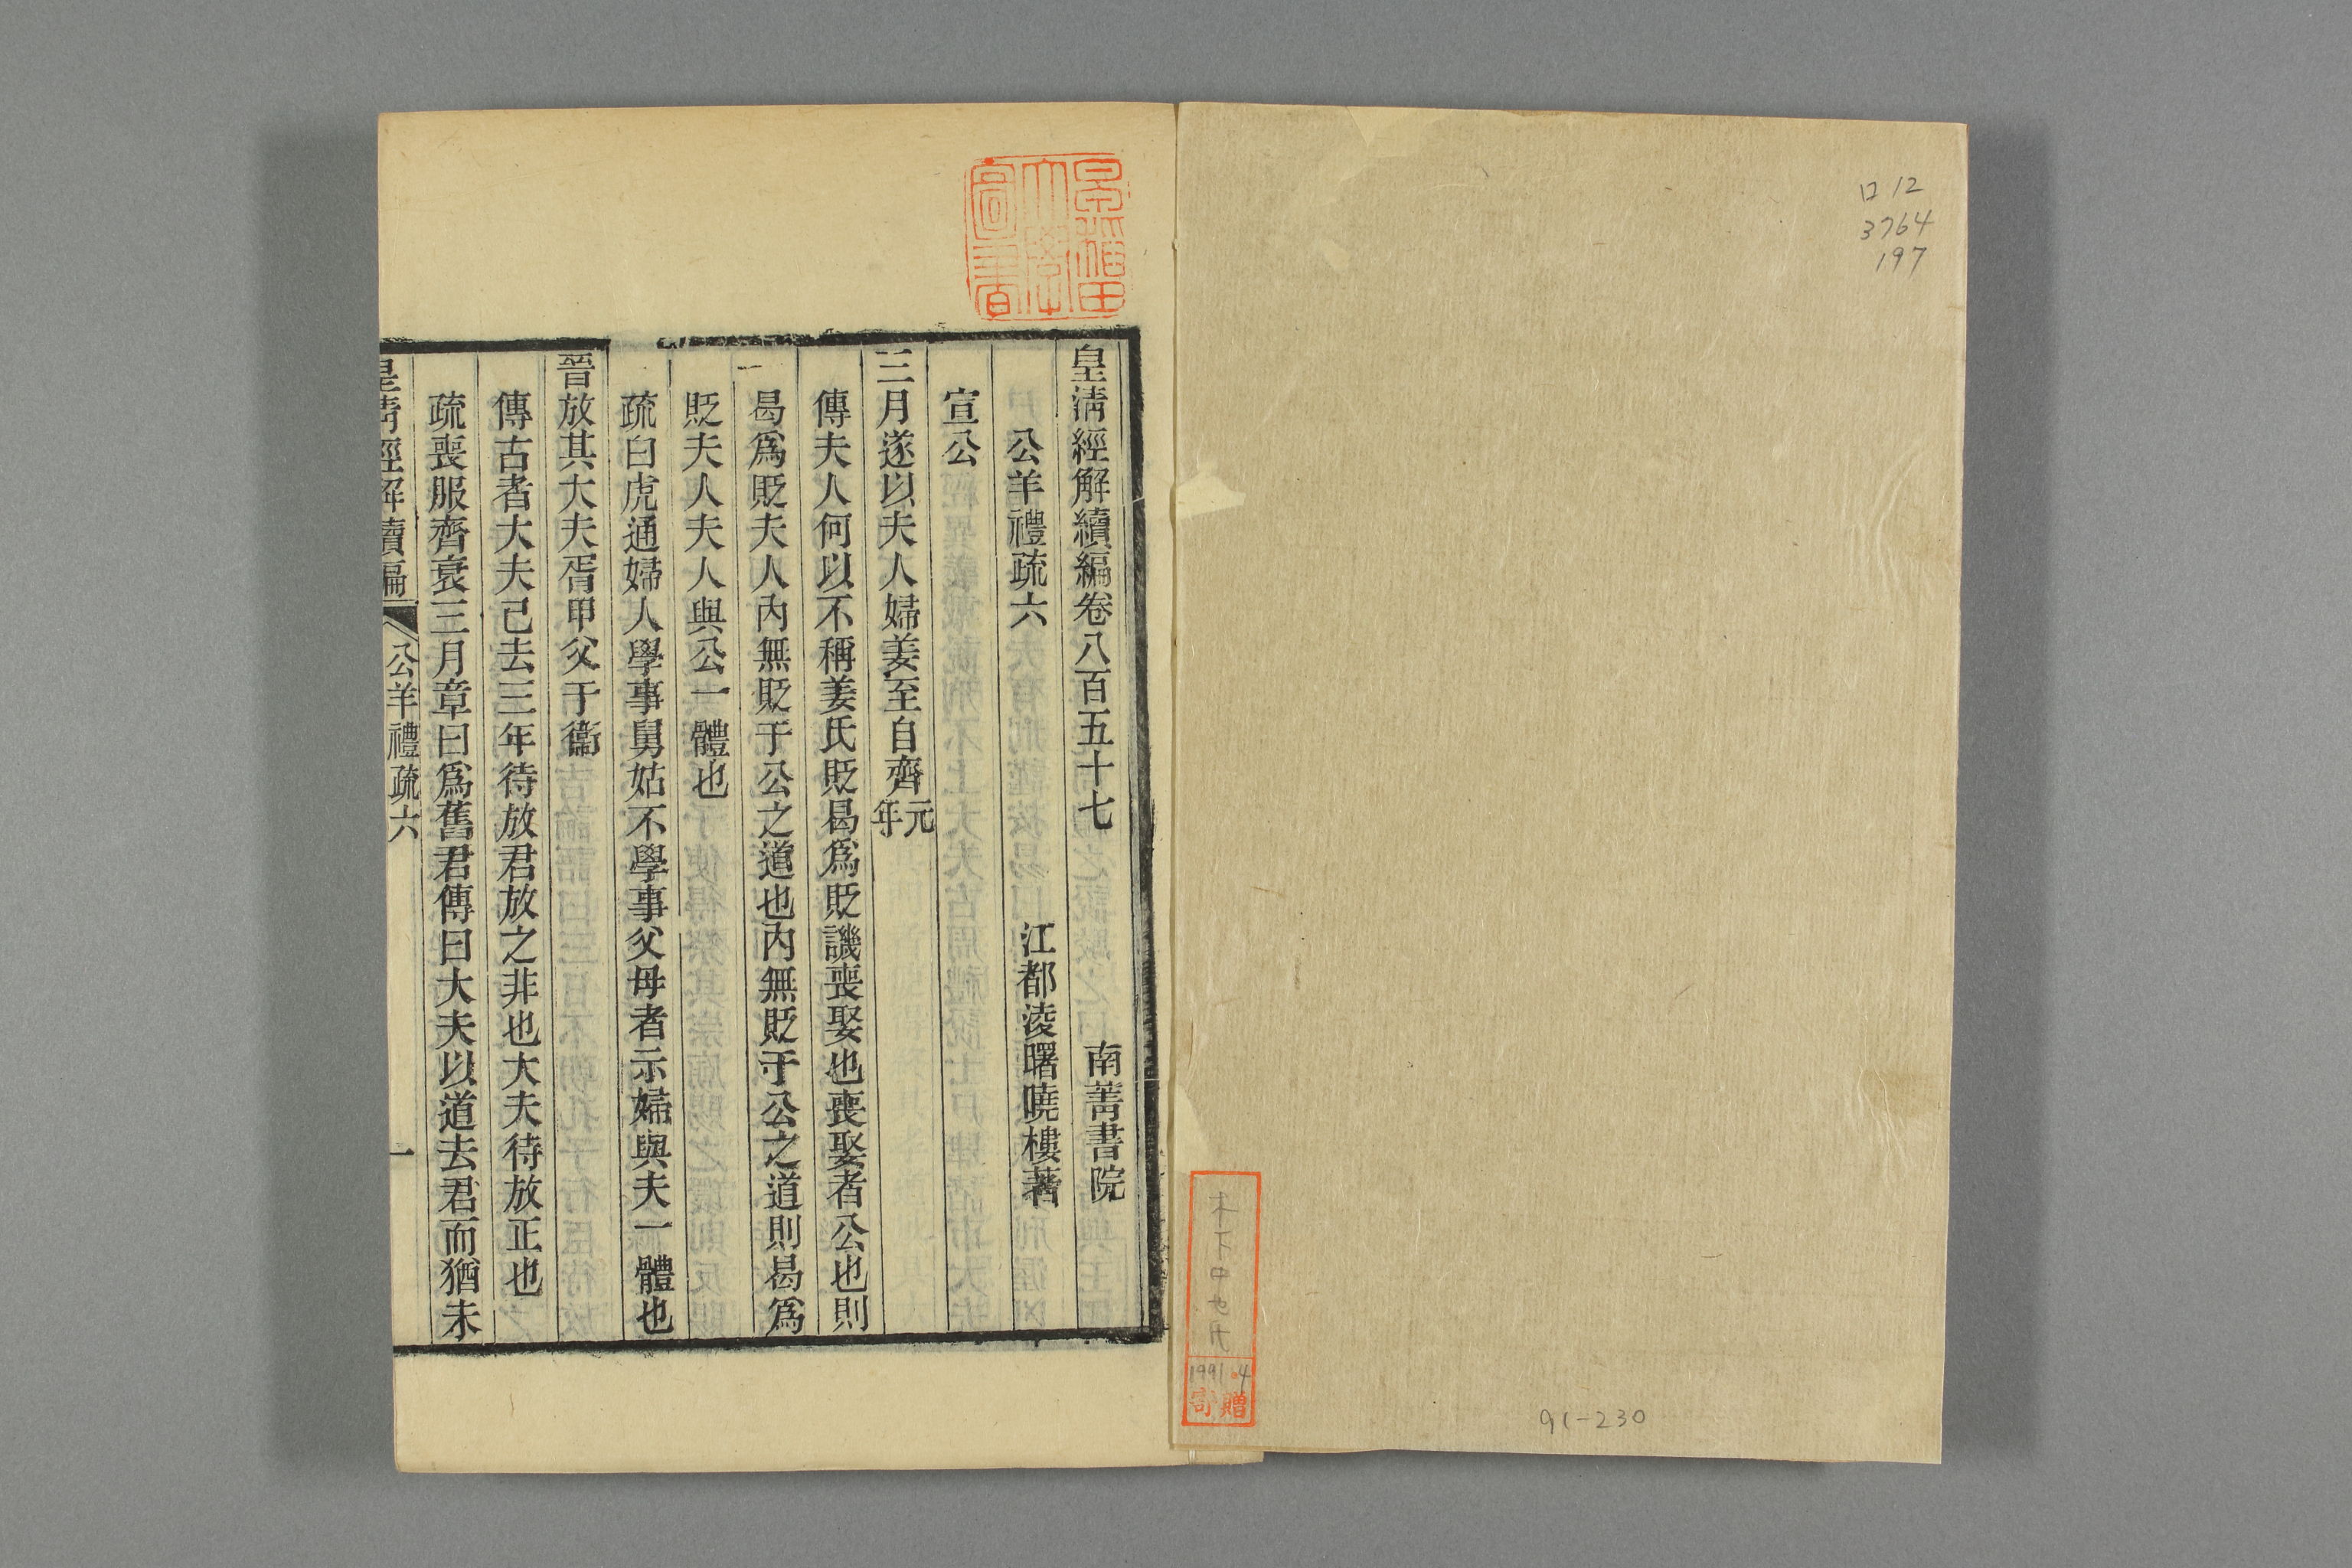 ロ12
3764
197
91-230
1991.4
寄贈
早稲田大學圖書
皇清經解續編卷八百五十七 南菁書院
公羊禮疏六 江都淩曙曉樓著
宣公
三月遂以夫人婦姜至自齊元年
傳夫人何以不稱姜氏貶曷爲貶譏喪娶也喪娶者公也則
曷爲貶夫人內無貶于公之道也內無貶于公之道則曷爲
貶夫人夫人與公一體也
疏白虎通婦人學事舅姑不學事父母者示婦與夫一體也
晉放其大夫胥甲父于衞
傳古者大夫已去三年待放君放之非也大夫待放正也
疏喪服齊衰三月章曰爲舊君傳曰大夫以道去君而猶未
皇清經解續編 公羊禮疏六 一